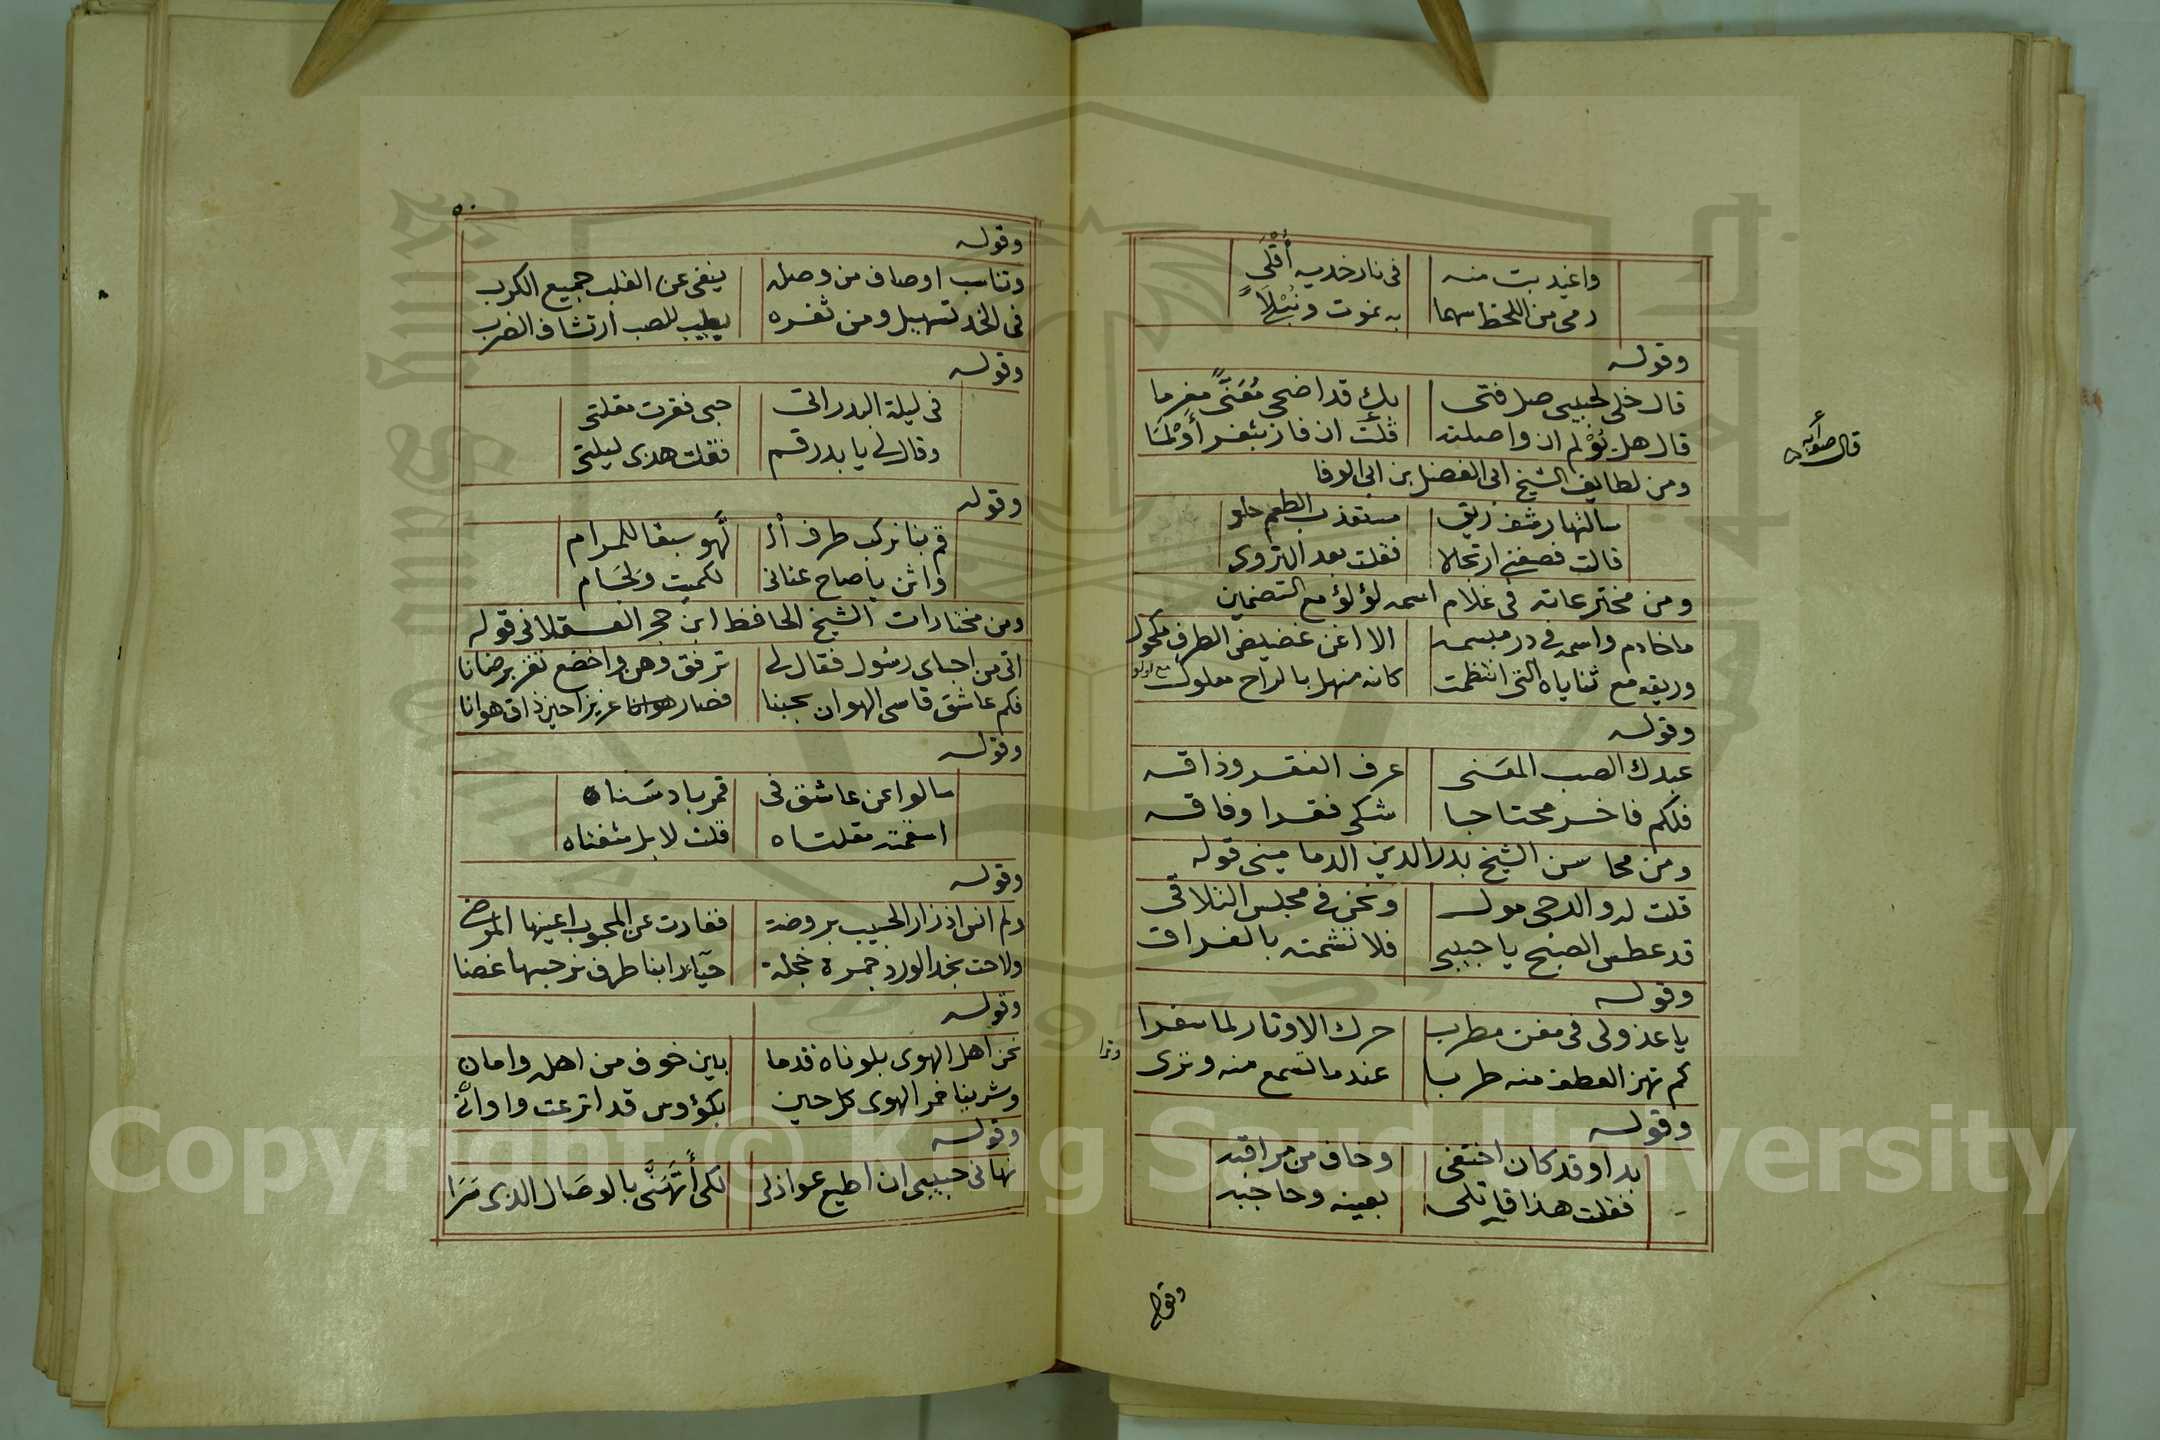 واغيد بت منه في نار خديه أقلى
رمى من اللحظ سهما به نموت ونبلا
وقوله
قال خلى لحبيبي صل فتى بك قد اضحى معنى مغرما
قال هل يؤلم ان واصلته قلت ان فاز بثغر أولما
ومن لطايف الشيخ ابى الفضل بن ابى الوفا
سالتها رشف ريق مستعذب الطعم حلو
قالت فصفنى ارتجالا فقلت بعد التروى
ومن مخترعاته فى غلام اسمه لؤلؤ مع التضمين
ما خادم واسمه فى در مبسمه الا اغن غضيض الطرف مكحول
وريقه مع ثناياه التى انتظمت كانه منهل بالراح معلول
مع لولو
وقوله
عبدك الصب المعنى عرف الفقر وذاقه
فلكم فاخر محتاجا شكى فقرا وفاقه
ومن محاسن الشيخ بدر الدين الدمامينى قوله
قلت له والدجى مول ونحن فى مجلس التلاقى
قد عطس الصبح يا حبيبى فلا تشمته بالفراق
وقوله
يا عذولى فى مغن مطرب حرك الاوتار لما سفرا
كم تهز العطف منه طربا عندما تسمع منه وترى
وترا
وقوله
بدا وقد كان اختفى وخاف من مراقبه
فقلت هذا قاتلى بعينه وحاجبه
وقوله
قال صوابه
٥٠
وقوله
وتناسب اوصاف من وصله ينفى عن القلب جميع الكرب
فى الخد تسهيل ومن ثغره يطيب للصب ارتشاف الضرب
وقوله
فى ليلة البدر اتى حبى فقرت مقلتى
وقال لى يا بدر قم فقلت هذى ليلتى
وقوله
قم بنا نركب طرف الـ لهو سبقا للمرام
واثن يا صاح عنانى لكميت ولجام
ومن مختارات الشيخ الحافظ ابن حجر العسقلانى قوله
اتى من احباى رسول فقال لى ترفق وهن واخضع تفز برضانا
فكم عاشق قاسى الهوان بحبنا فصار هوانا عزيزا حين ذاق هوانا
وقوله
سالوا عن عاشق فى قمر باد سناه
اسقمته مقلتاه قلت لا بل شفتاه
وقوله
ولم انس اذ زار الحبيب بروضة فغارت عن المحبوب اعينها المرضى
ولاحت بخد الورد حمرة خجلة حياء راينا طرف نرجسها غضا
وقوله
نحن اهل الهوى بلوناه قدما بين خوف من اهله وامان
وشربنا خمر الهوى كل حين بكؤوس قد اترعت واوانى
وقوله
نهانى حبيبى ان اطيع عواذلى لكى أتهنى بالوصال الذى سرا
Copyright © King Saud University
King Saud University
1957